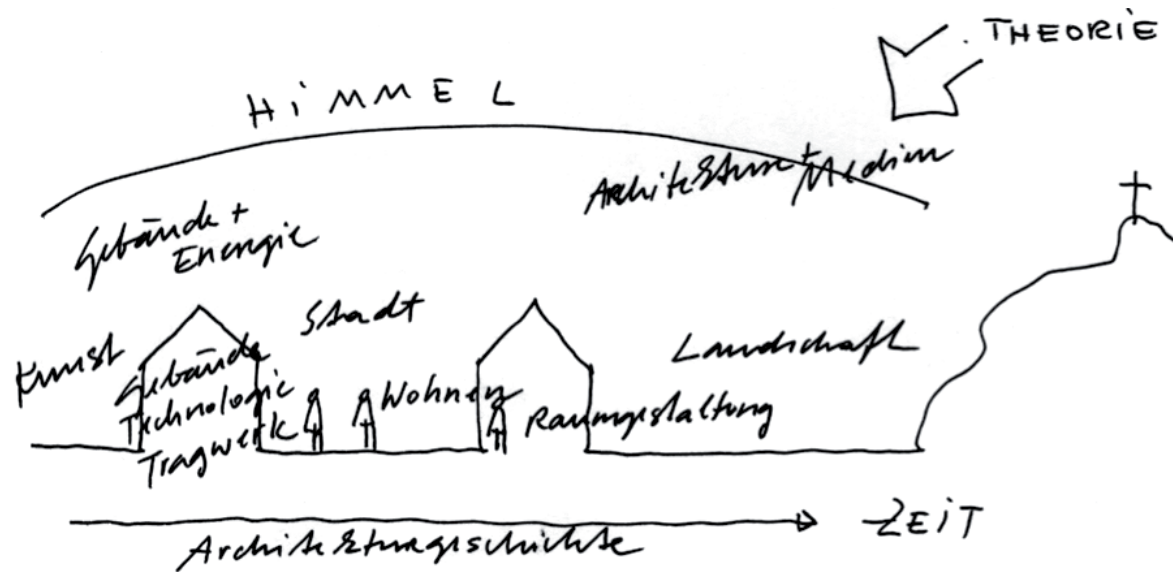 THEORIE
HiMMEL
Architektur + Medien
Gebäude +
Energie
Stadt
Kunst
Landschaft
Gebäude
Technologie
Tragwerk
Wohnen
Raumgestaltung
ZEiT
Architekturgeschichte